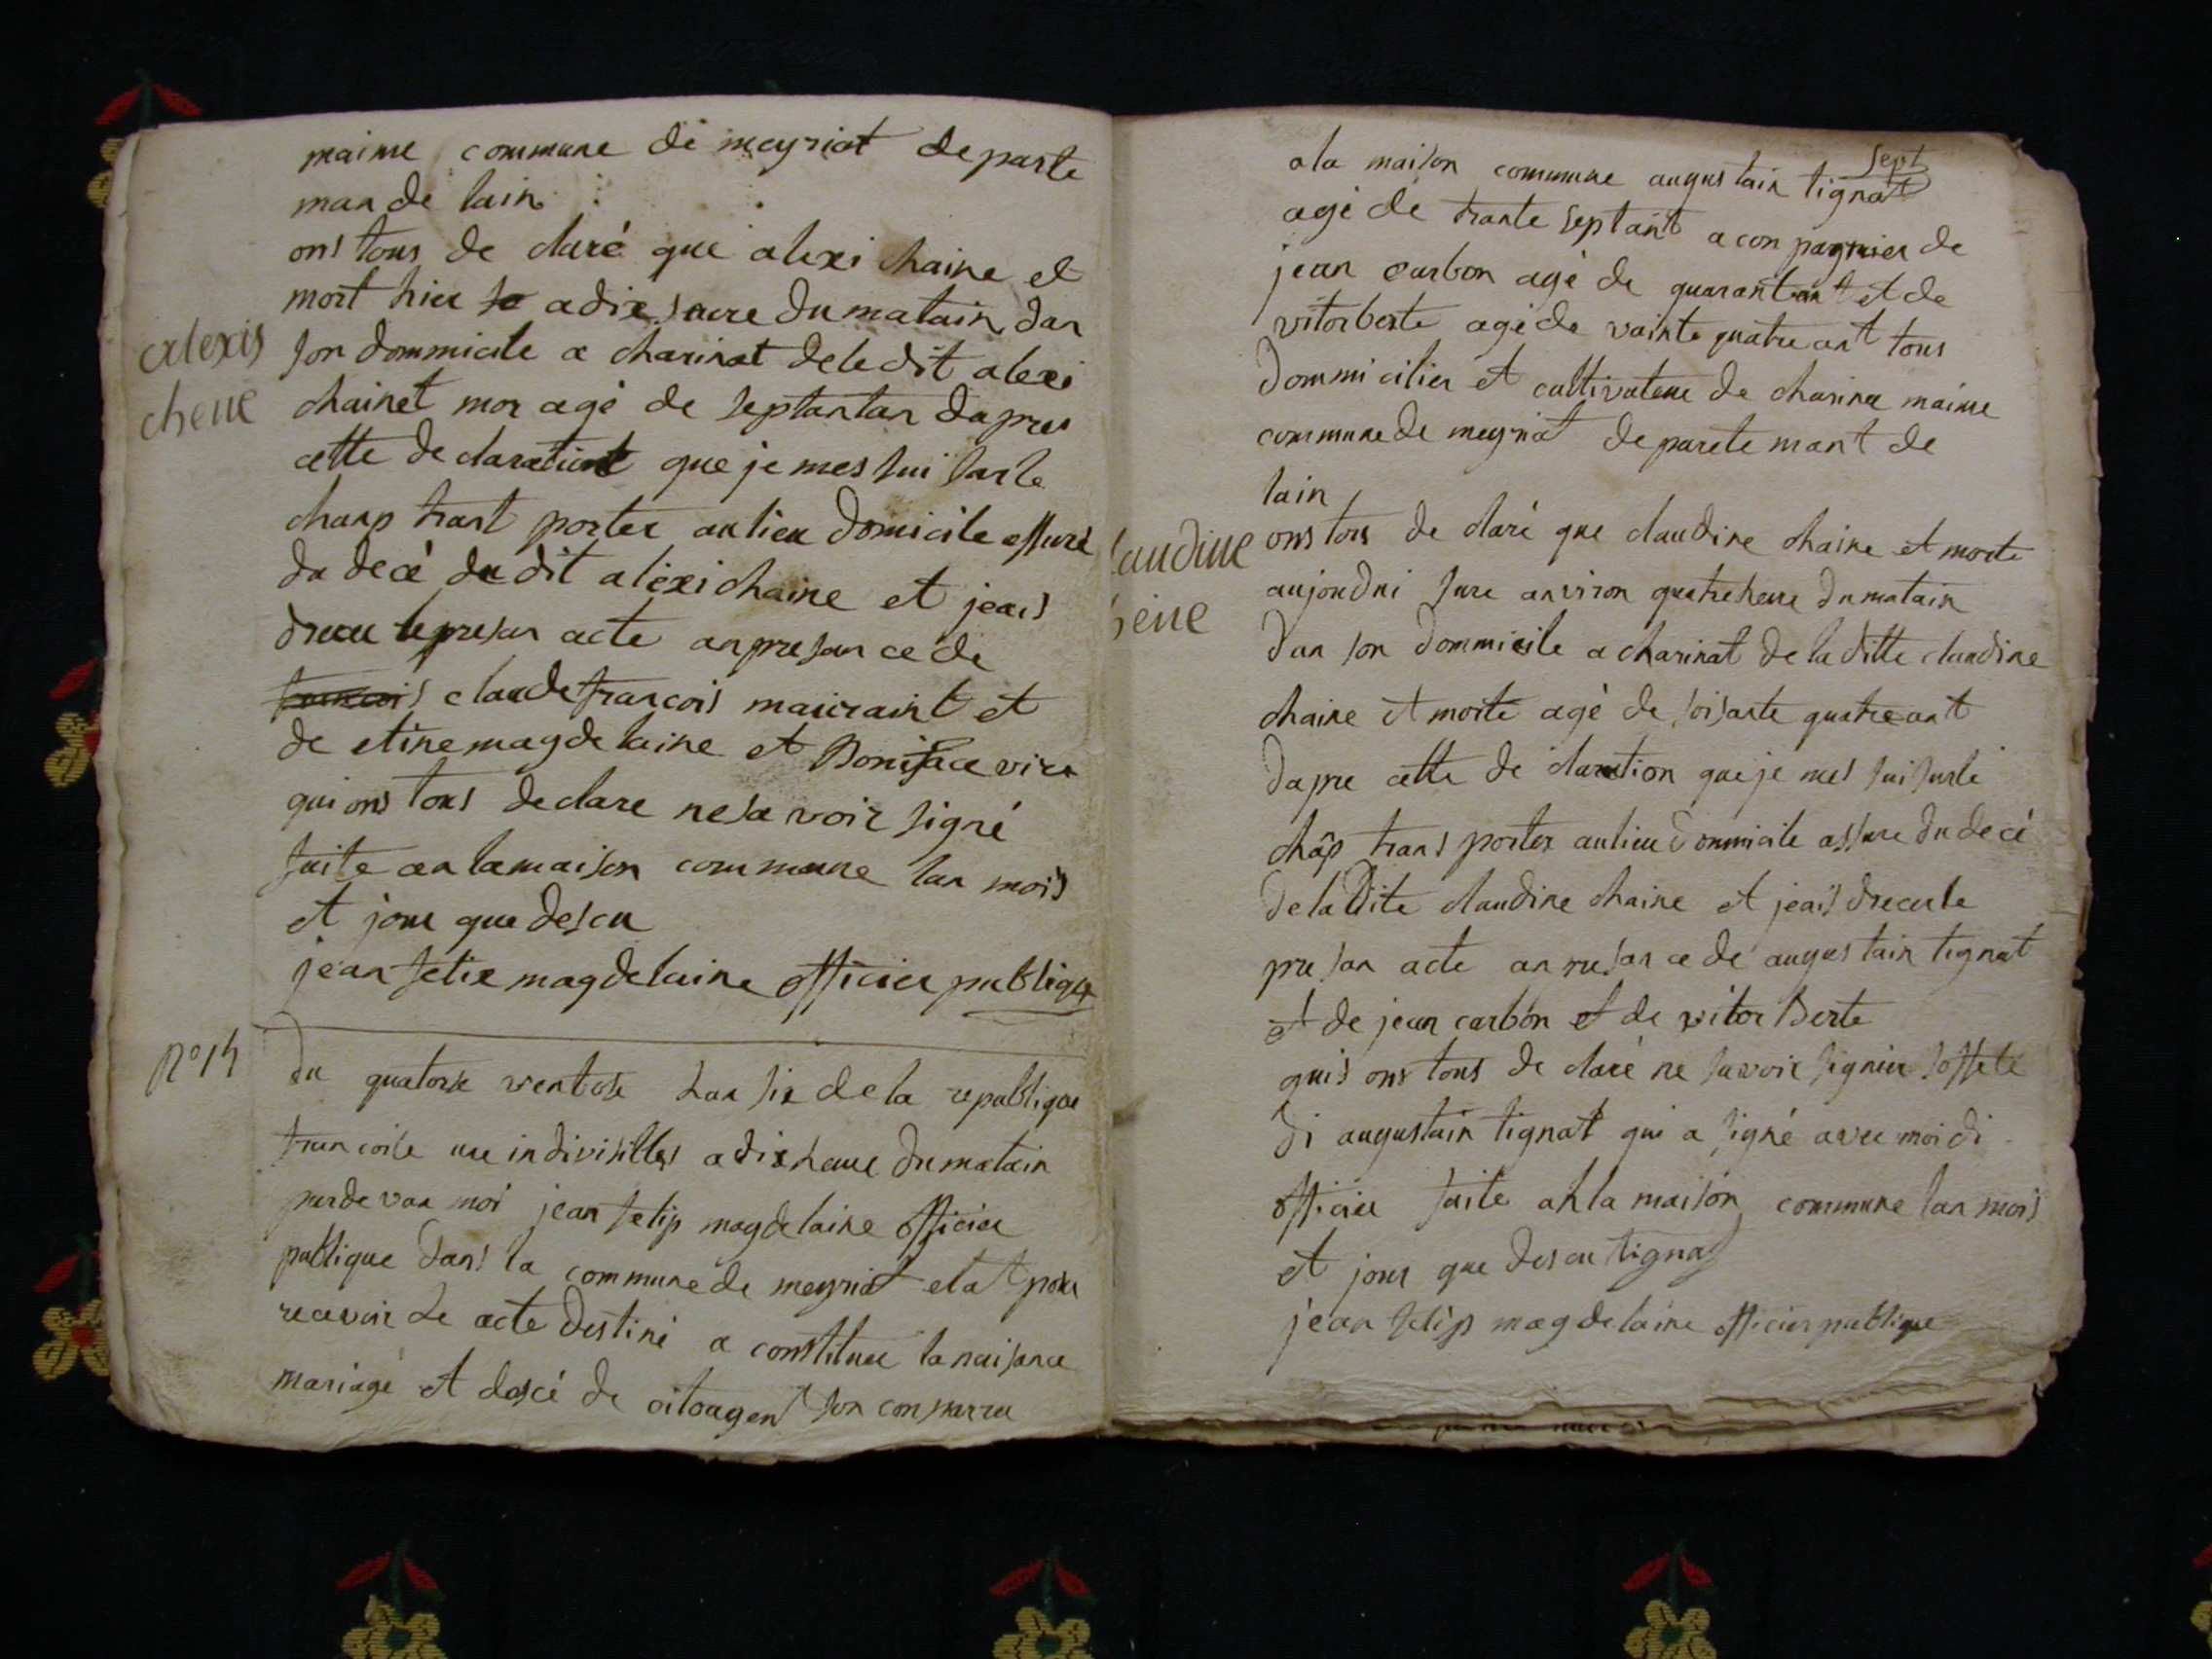 maime commune de meyriat departe
man de lain
ons tous de claré que alexi chaine et
mort hier a dix sure du matain dan
alexis
chene
son dommicile a charinat dele dit alexi
chainet mor agé de septantan dapres
cette de clarationt que je mes sui sarle
champ trant porter au lieu domicile assuré
du decé du dit alexi chaine et jeais
drecu le presan acte an presan ce de
claude francois maicraint et
de etine magdelaine et Boniface
qui ons tous declare ne sa voir signé
faite an la maison commune lan mois
et jour que desCu
jean felix magdelaine officier publique
no 14
du quatorse ventose Lan six de la republique
francoise une indivisilles a dix heure du matain
parde van moi jean felip magdelaine officier
publique dans la commune de meyriat elat pour
recevoir Le acte destiné a constituer la naisance
mariage et descé de citoayen
sept
a la maison commune augustain tignat
agé de trante septant acon pagnier de
jean carbon agé de quarant ant et de
vitor berte agé de vainte quatre ant tous
dommicilier et cultivateur de charina maime
commune de meyriat de parete mant de
lain
laudine
hene
ons tous de claré que claudine chaine et morte
aujourdui sure anviron quatre heure du matain
dan son dommicile a charinat de la ditte claudine
chaine et morte agé de soisante quatre ant
dapre cette de claration que je mes sui surle
châp trans porter au lieu dommicile assure du decé
de la dite claudine chaine et jeais drecu le
pre san acte an resan ce de augustain tignat
et de jean carbon et de vitor Berte
quis ons tous de claré ne savoir signier
di augustain tignat qui a signé avec moi di
officier faite an la maison commune lan mois
et jour que descu tignat
jean felip magdelaine officier publique